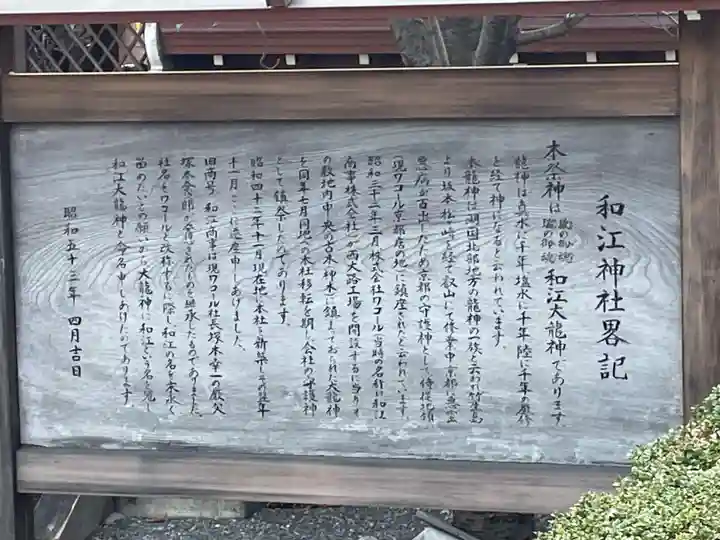 和江神社畧記
本祭神は 和江大龍神であります。
龍神は真水に千年塩水に千年陸に千年の
を経て神になると云われています。
本龍神は湖国北部地方の龍神の一族と云われ竹生島
より坂本松崎を経て叡山にて修業中京都に悪霊
悪病が百出したため京都の守護神として
(現ワコール京都店の地)に鎮座されたと云われています
昭和三十二年三月株式会社ワコール(当時の名称は和江
商事株式会社)が西大路工場を開設するに当りそ
の敷地内中央の老木神木に鎮まっておられた大龍神
を同年七月同地への本社移転を期し会社の守護神
として鎮祭したのであります。
昭和四十二年十一月現在地に本社を新築しその翌年
十一月ここに遷座申しあげました。
旧商号 和江商事は現ワコール社長塚本幸一の厳父
塚本粂次郎が発 されたものを継承したものでありました。
社名をワコールと改称するに際し和江の名を末永く
留めたいとの願いから大龍神に和江という名を冠し
和江大龍神と命名申しあげたのであります。
昭和五十三年 四月吉日